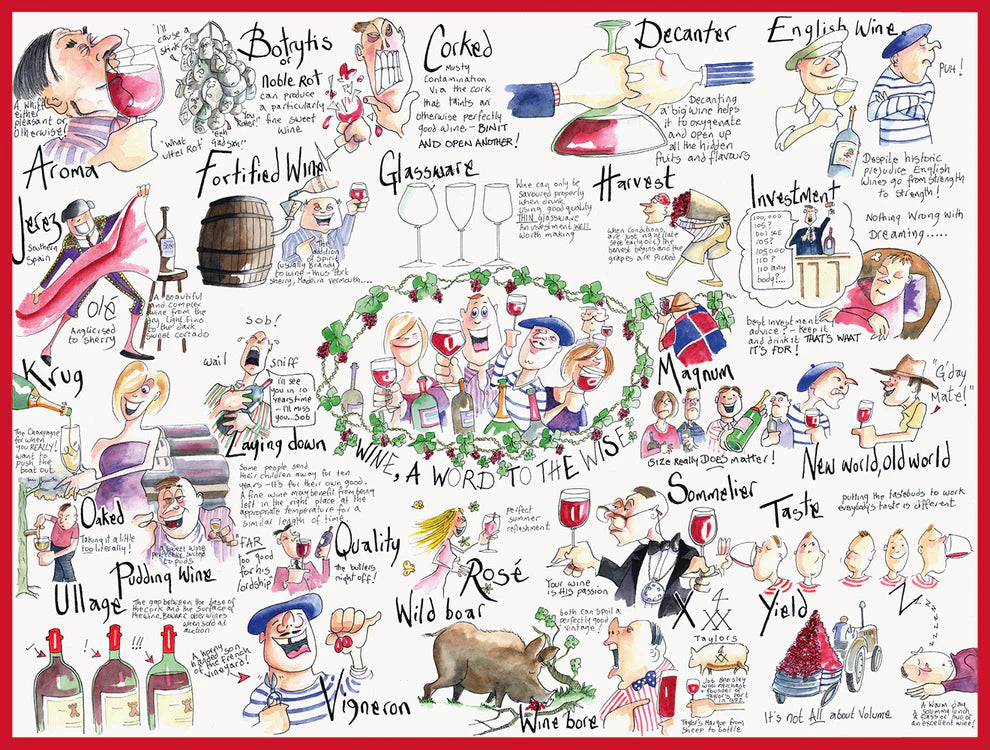 "I'll
cause a
stink"
Botrytis
or
Noble Rot
can produce
a particularly
fine sweet
wine
"You
Rotter!"
"een
gad sah!"
"What
utter Rot"
A whiff
either
pleasant or
otherwise!
Aroma
Corked
Musty
Contamination
via the cork
that taints an
otherwise perfectly
good wine - BIN IT
AND OPEN ANOTHER!
Decanter
Decanting
a 'big' wine helps
it to oxygenate
and open up
all the hidden
fruits and flavours
English Wine
PUH!
Despite historic
prejudice English
Wines go from strength
to strength!
Jerez
Southern
Spain
Olé
Anglicised
to 'sherry'
A Beautiful
and complex
wine from the
dry light Fino
to the dark
sweet cortado
Fortified Wine
The
addition
of Spirit
(usually Brandy)
to wine - thus Port
sherry, Madeira vermouth....
Glassware
Wine can only be
savoured properly
when drunk
using good quality
THIN glassware
An investment well
worth making
Harvest
when conditions
are just right (late
Sept early Oct) the
harvest begins and the
grapes are picked
Investment
100,000
105?
Do I see
105?
105,000
110?
110 any
body?...
Nothing Wrong with
Dreaming.....
best investment
advice? - keep it
and drink it THAT'S WHAT
IT'S FOR!
Krug
The Champagne
for when
you REALLY
want to
push the
boat out
Sob!
wail
sniff
I'll see
you in 10
years time
- I'll miss
you...Sob
Laying down
Some people send
their children away for ten
years - It's for their own good.
A fine wine may benefit from being
left in the right place at the
appropriate temperature for a
similar length of time
WINE, A WORD TO THE WISE
Magnum
Size Really DOES matter!
"G'day
Mate!"
New world, old world
Oaked
Taking it a little
too literally!
Pudding Wine
A sweet wine
perfectly suited
to puds
FAR
too good
for his
lordship
Quality
the butlers
night off!
perfect
summer
refreshment
Rosé
Sommelier
Your wine
is HIS passion
Taste
putting the tastebuds to work
everybody's taste is different
Ullage
The gap between the base of
the cork and the surface of
the wine. Beware older wines
when sold at
auction
!
!!
!!!
A horny
handed son
of the French
vineyard!
Vigneron
Wild boar
both can spoil a
perfectly good
vintage!
Wine bore
X
Taylors
Job Bearsley
wine merchant
& founder of
Taylor's Port
in 1692
Taylor's Marque from
Sheep to bottle
Yield
It's not All about Volume
Zzzzzz
A warm day
a yummy lunch
a glass or two of
an excellent wine!